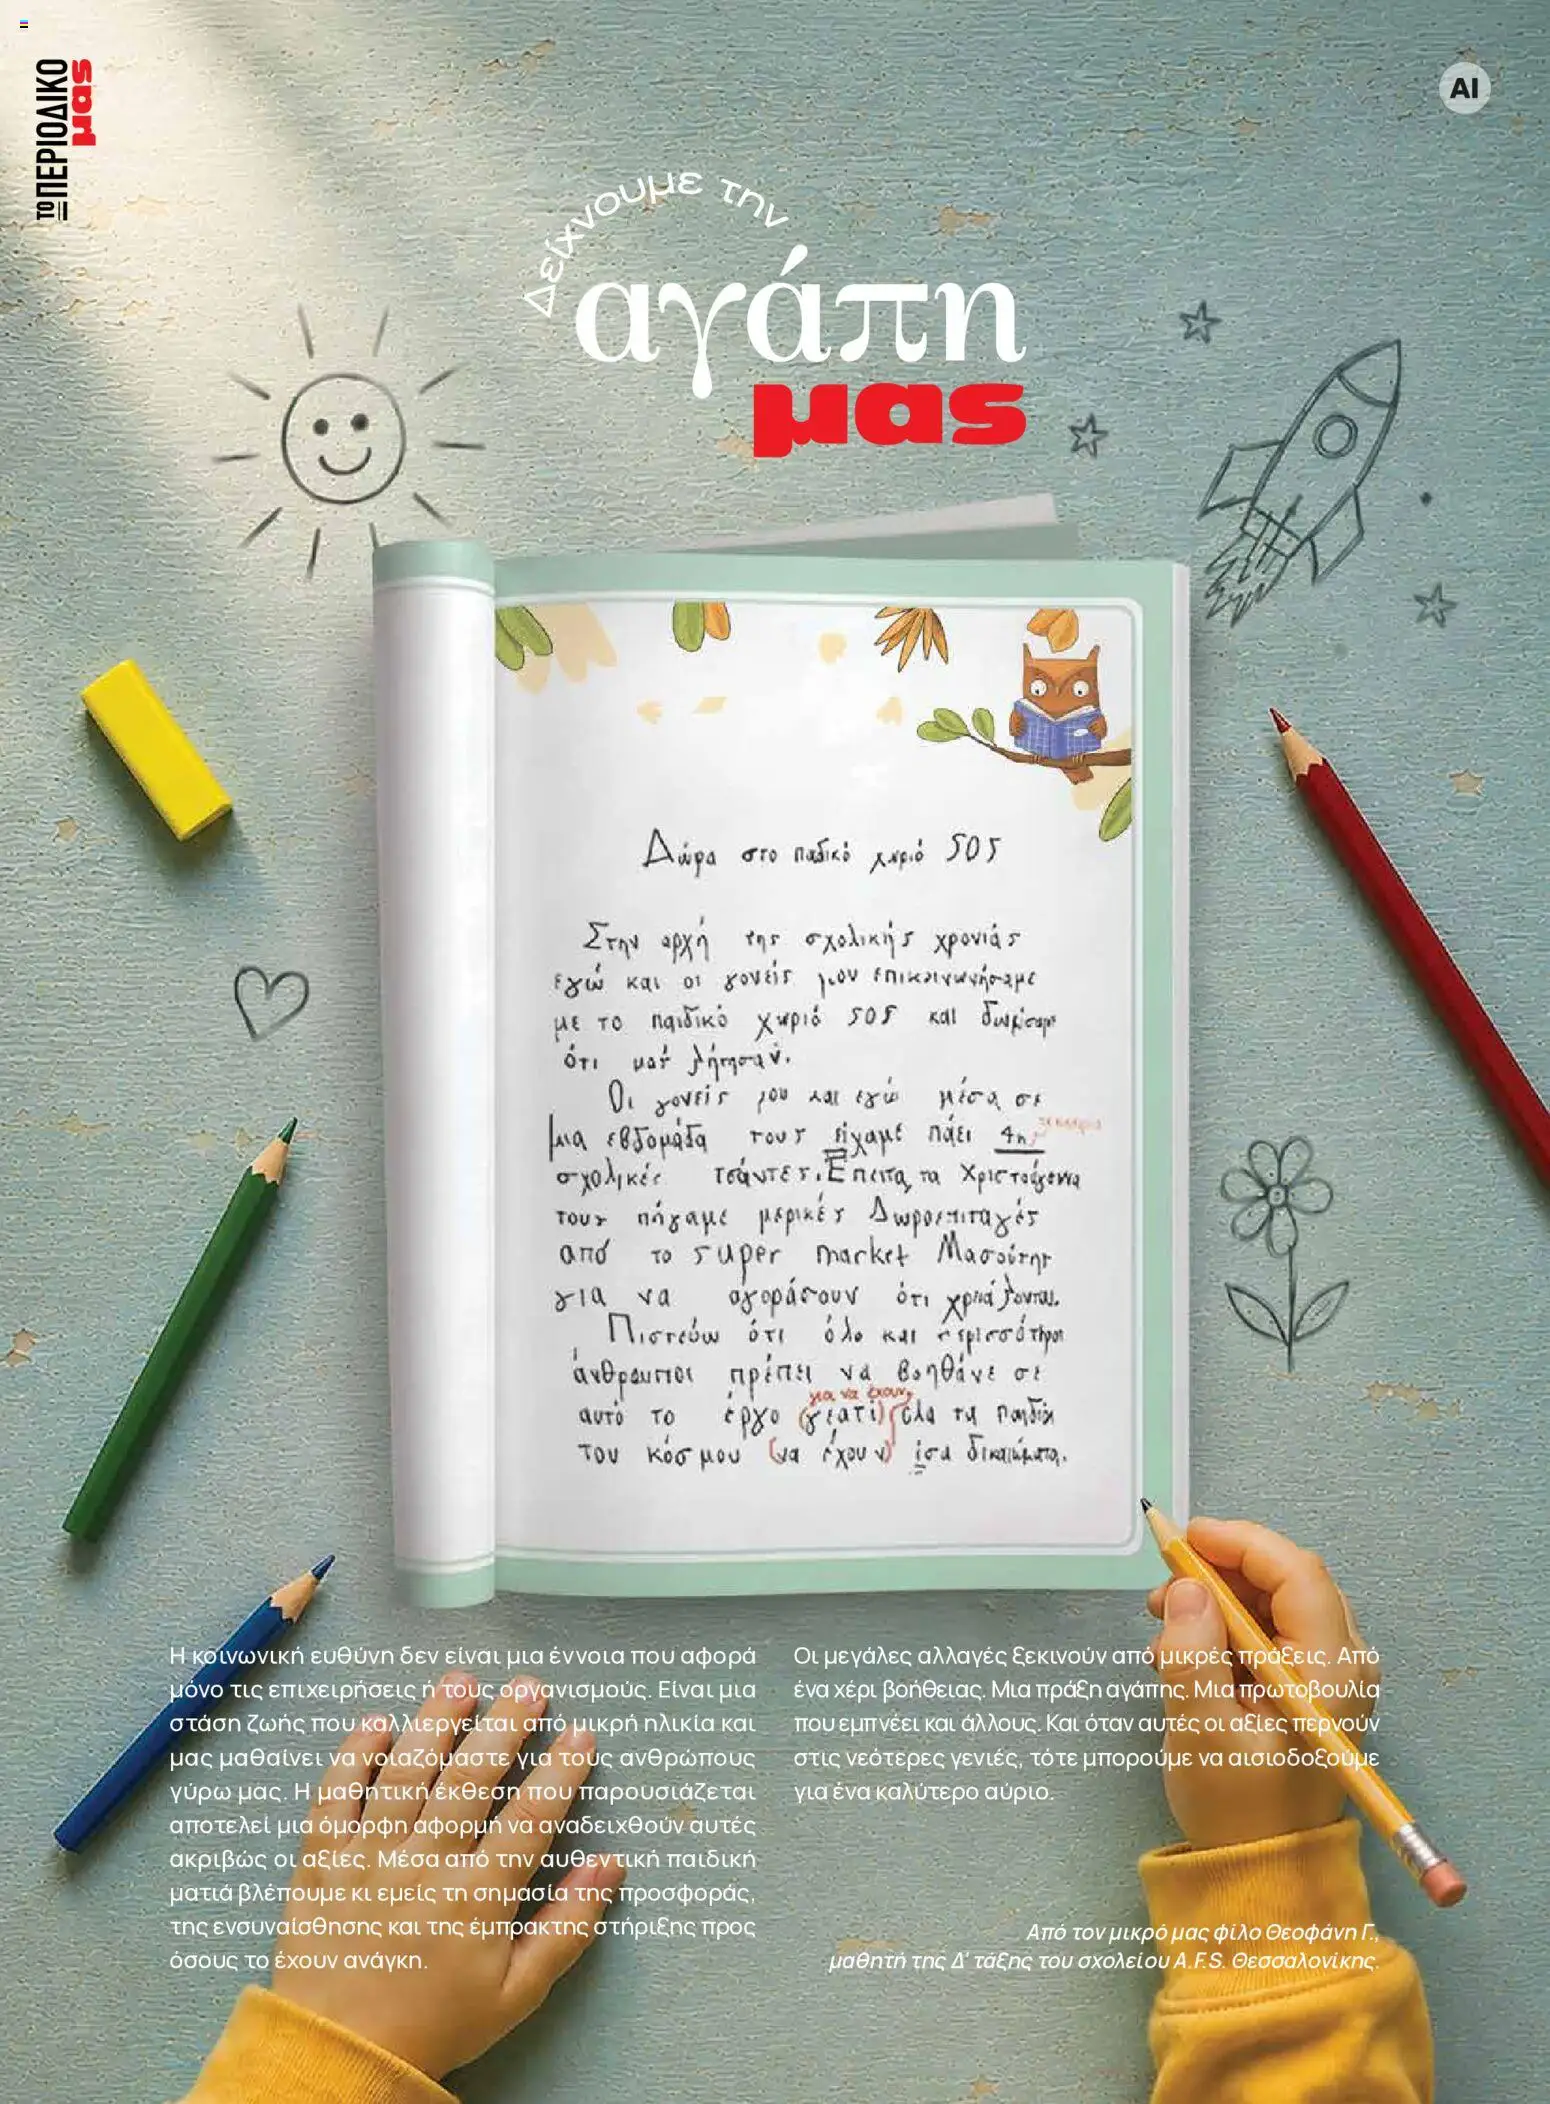 ΤΟ ΠΕΡΙΟΔΙΚΟ
μας
AI
Δείχνουμε την
αγάπη
μας
Δώρα στο παδικό χωριό SOS
Στην αρχή της σχολικής χρονιάς
εγώ και οι γονείς μου επικοινωνήσαμε
με το παιδικό χωριό SOS και δωρίσαμε
ότι μας ζήτησαν.
Οι γονείς μου και εγώ μέσα σε
μια εβδομάδα τους είχαμε πάει 4η
σχολικές τσάντες. Έπειτα, τα Χριστούγεννα
τους πήγαμε μερικές Δωροεπιταγές
από το super market Μασούτης
για να αγοράσουν ότι χρειάζονται.
Πιστεύω ότι όλο και περισσότεροι
άνθρωποι πρέπει να βοηθάνε σε
για να έχουν
αυτό το έργο (γιατί) όλα τα παιδιά
του κόσμου (να έχουν) ίσα δικαιώματα.
Η κοινωνική ευθύνη δεν είναι μια έννοια που αφορά
μόνο τις επιχειρήσεις ή τους οργανισμούς. Είναι μια
στάση ζωής που καλλιεργείται από μικρή ηλικία και
μας μαθαίνει να νοιαζόμαστε για τους ανθρώπους
γύρω μας. Η μαθητική έκθεση που παρουσιάζεται
αποτελεί μια όμορφη αφορμή να αναδειχθούν αυτές
ακριβώς οι αξίες. Μέσα από την αυθεντική παιδική
ματιά βλέπουμε κι εμείς τη σημασία της προσφοράς,
της ενσυναίσθησης και της έμπρακτης στήριξης προς
όσους το έχουν ανάγκη.
Οι μεγάλες αλλαγές ξεκινούν από μικρές πράξεις. Από
ένα χέρι βοήθειας. Μια πράξη αγάπης. Μια πρωτοβουλία
που εμπνέει και άλλους. Και όταν αυτές οι αξίες περνούν
στις νεότερες γενιές, τότε μπορούμε να αισιοδοξούμε
για ένα καλύτερο αύριο.
Από τον μικρό μας φίλο Θεοφάνη Γ.,
μαθητή της Δ' τάξης του σχολείου A.F.S. Θεσσαλονίκης.